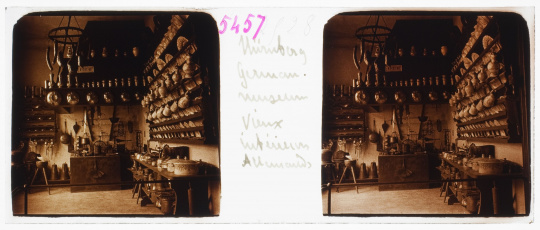 5457
Nürnberg
German.
museum
Vieux
intérieurs
Allemands